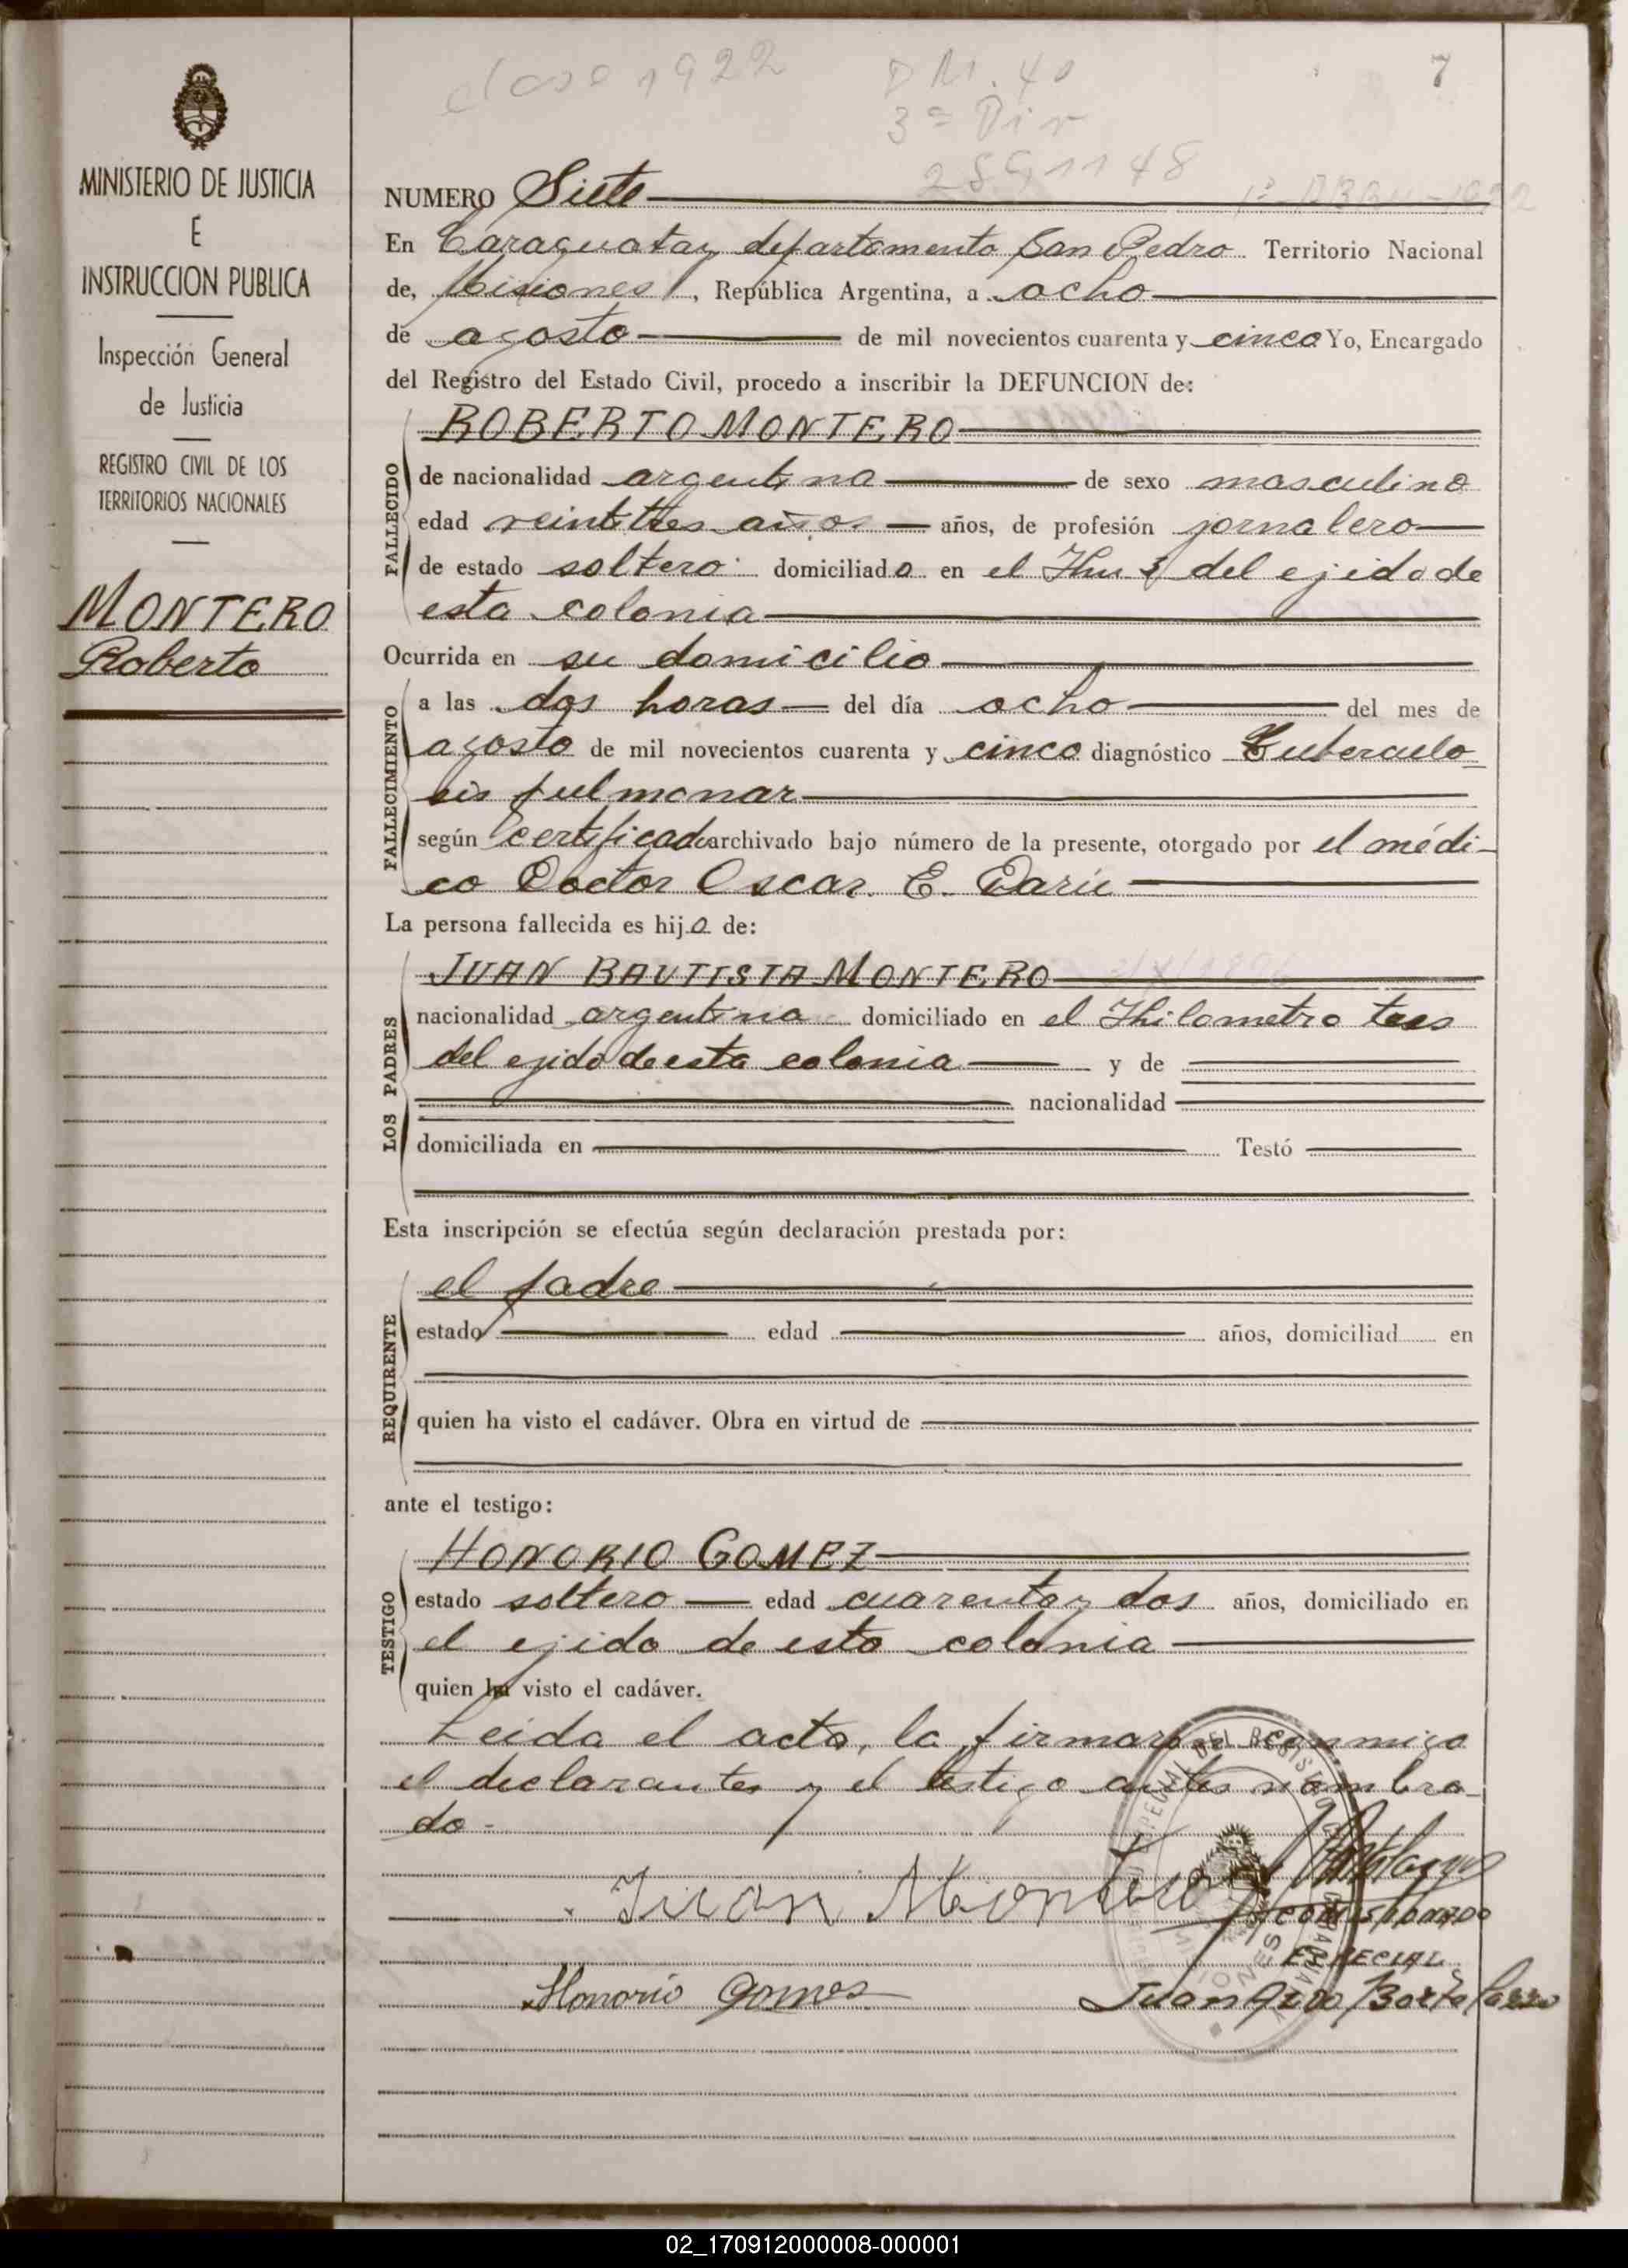 clase 1922 D M. 40 7
3ª Div
MINISTERIO DE JUSTICIA
E
INSTRUCCION PUBLICA
Inspección General
de Justicia
REGISTRO CIVIL DE LOS
TERRITORIOS NACIONALES
MONTERO
Roberto
NUMERO Siete
En Caraguatay departamento San Pedro Territorio Nacional
de, Misiones, República Argentina, a ocho
de agosto de mil novecientos cuarenta y cinco Yo, Encargado
del Registro del Estado Civil, procedo a inscribir la DEFUNCION de:
ROBERTO MONTERO
FALLECIDO
de nacionalidad argentina de sexo masculino
edad veintitres años años, de profesión jornalero
de estado soltero domiciliado en el Km 3 del ejido de
esta colonia
Ocurrida en su domicilio
FALLECIMIENTO
a las dos horas del día ocho del mes de
agosto de mil novecientos cuarenta y cinco diagnóstico Tuberculo
sis pulmonar
según certificado archivado bajo número de la presente, otorgado por el médi-
co Doctor Oscar E. Darú
La persona fallecida es hijo de:
JUAN BAUTISTA MONTERO
LOS PADRES
nacionalidad argentina domiciliado en el Khilometro tres
del ejido de esta colonia y de
nacionalidad
domiciliada en Testó
Esta inscripción se efectúa según declaración prestada por:
el padre
REQUIRENTE
estado edad años, domiciliad en
quien ha visto el cadáver. Obra en virtud de
ante el testigo:
HONORIO GOMEZ
TESTIGO
estado soltero edad cuarenta y dos años, domiciliado en
el ejido de esta colonia
quien ha visto el cadáver.
Leida el acta, la firmaron conmigo
el declarante y el testigo antes nombra
do-
Juan Montero
COMISIONADO
ESPECIAL
Honorio gomes
02_170912000008-000001